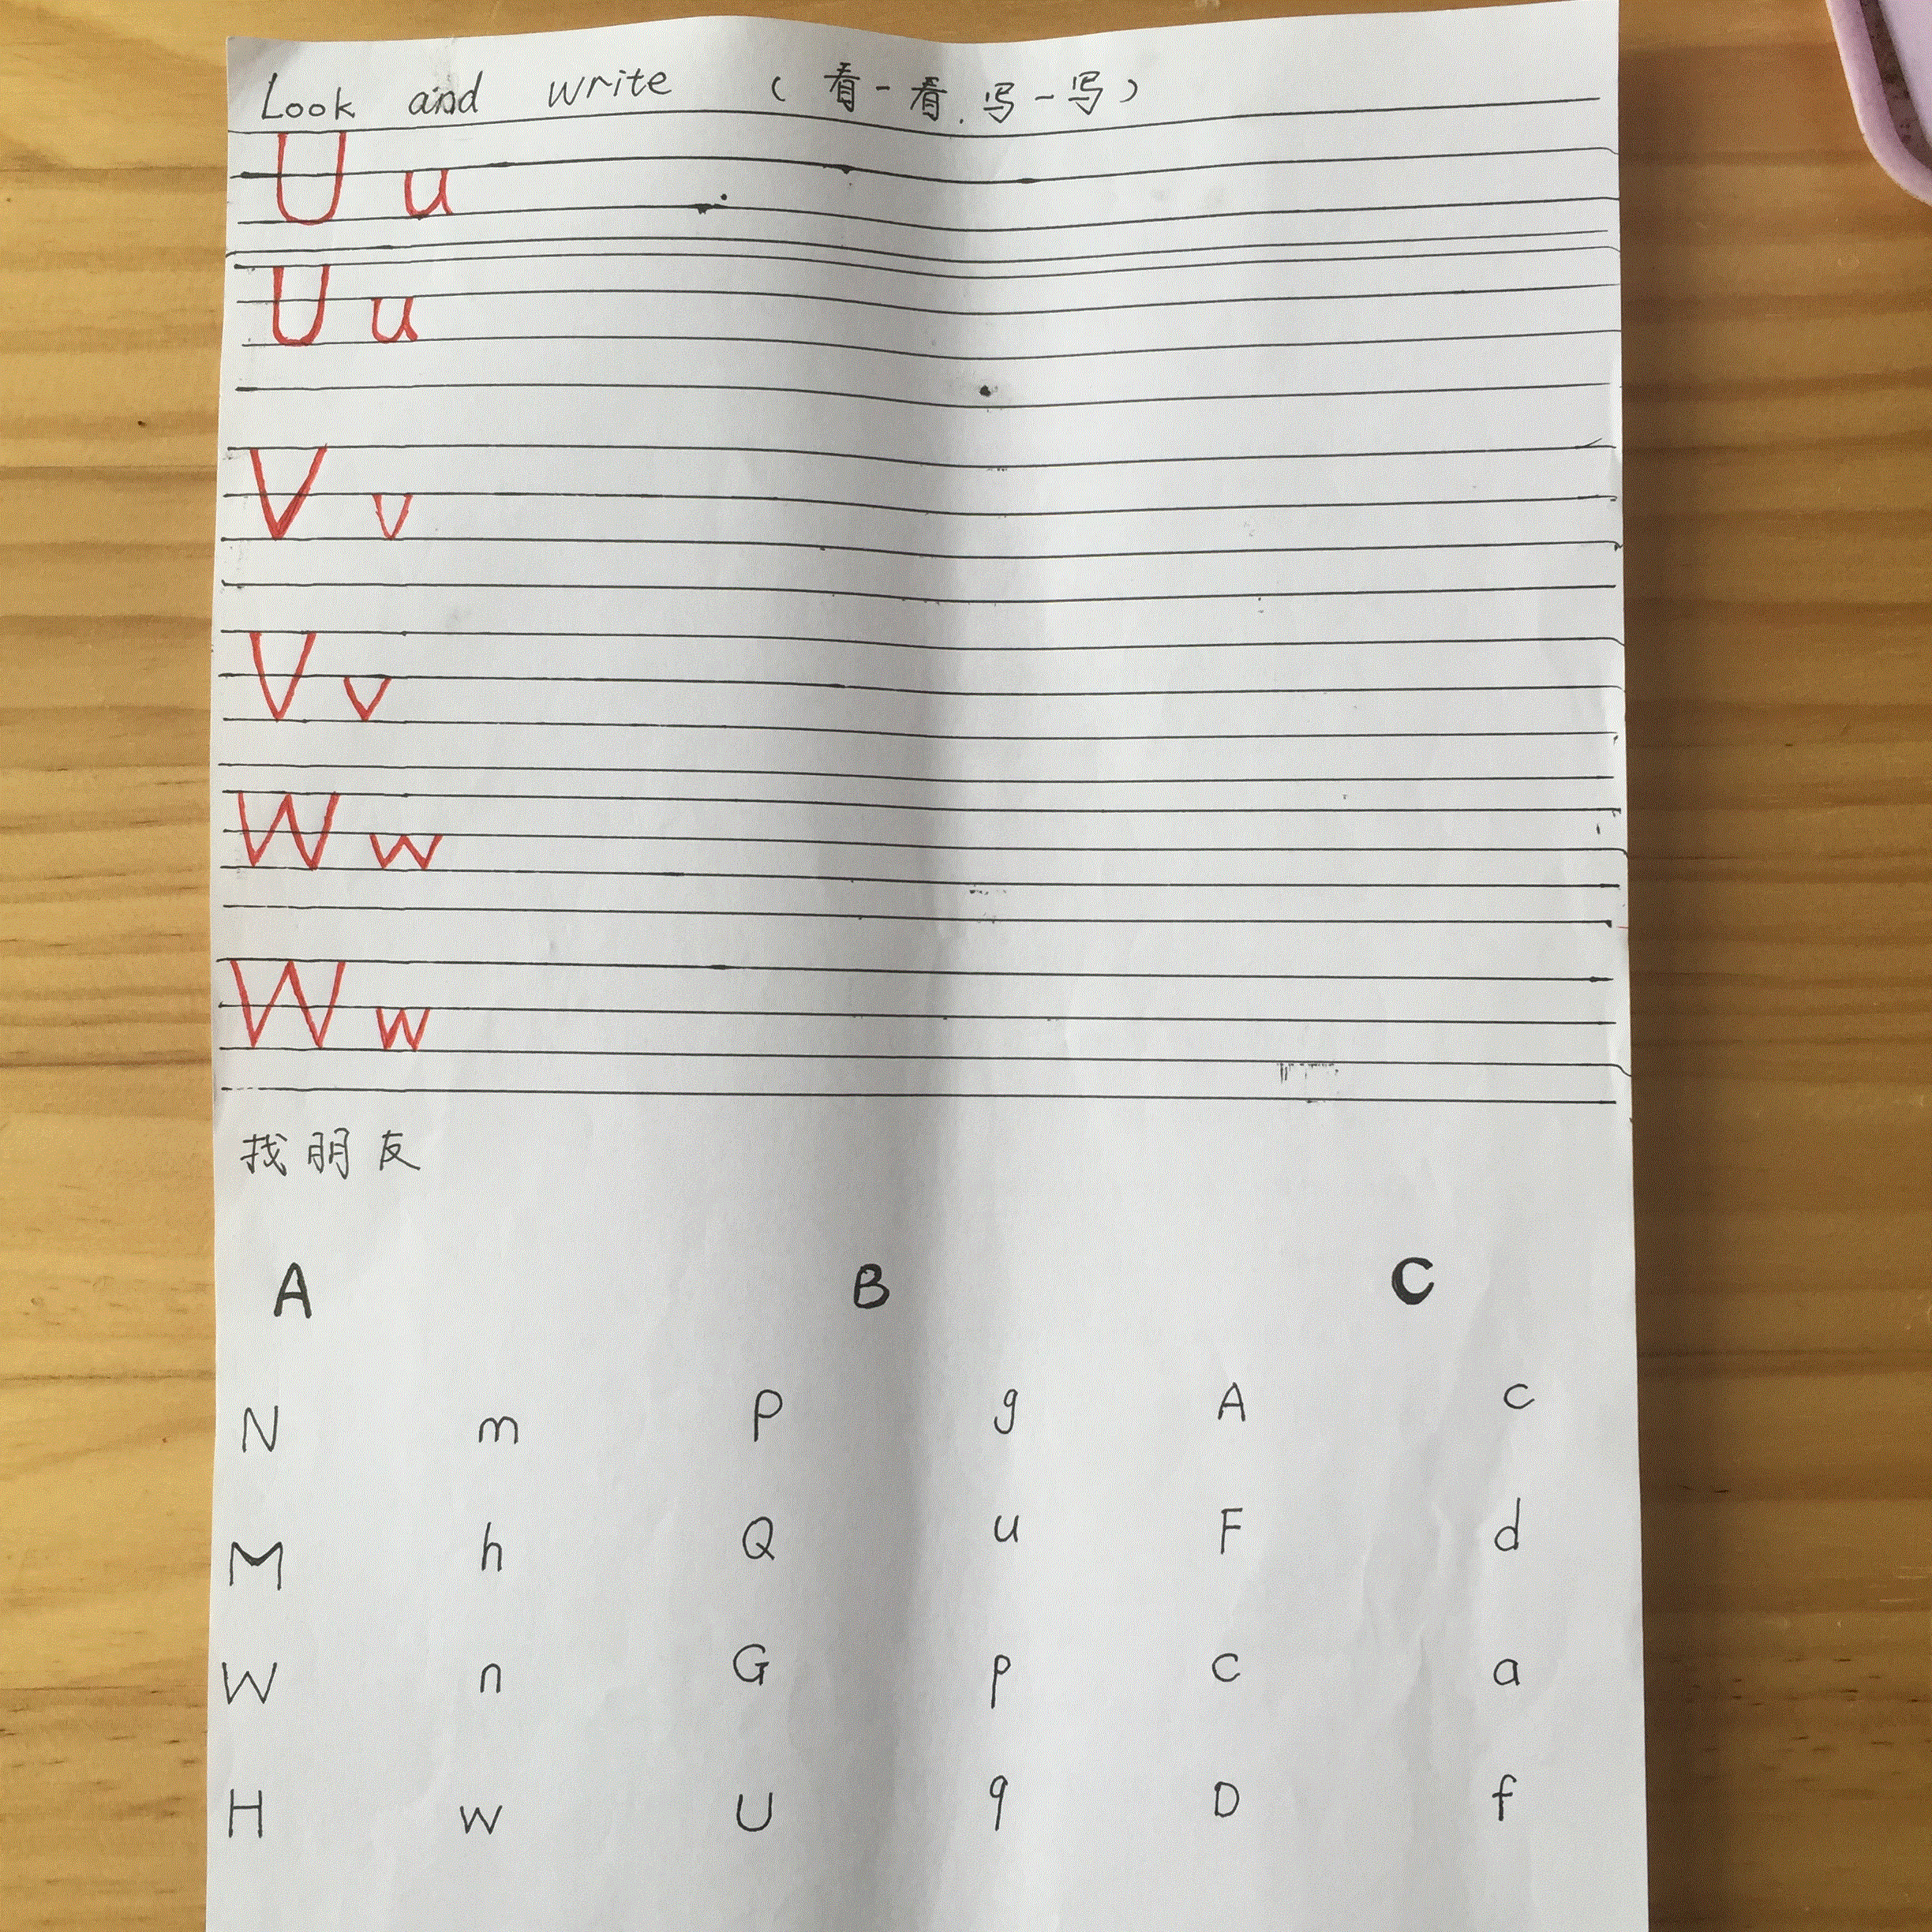 Look and write （看一看.写一写）
U u
U u
V v
V v
W w
W w
找朋友
A B C
N m P g A c
M h Q u F d
W n G p C a
H w U q D f